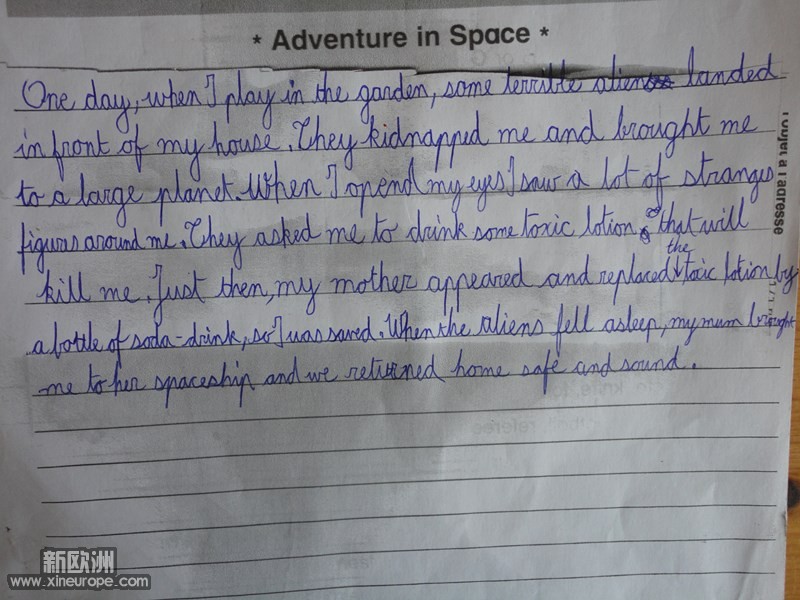 * Adventure in Space *
One day, when I play in the garden, some terrible aliens landed
in front of my house. They kidnapped me and brought me
to a large planet. When I opend my eyes I saw a lot of stranges
figurs around me. They asked me to drink some toxic lotion that will
kill me. Just then, my mother appeared and replaced the toxic lotion by
a bottle of soda-drink, so I was saved. When the aliens fell asleep, my mum brought
me to her spaceship and we returned home safe and sound.
新欧洲
www.xineurope.com